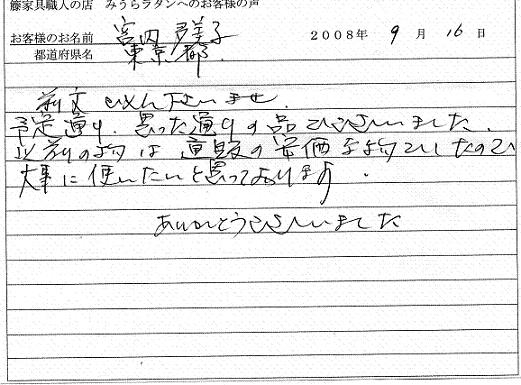 籐家具職人の店 みうらラタンへのお客様の声
お客様のお名前 宮田 多美子 2008年 9月 16日
都道府県名 東京都
前文 ごめん下さいませ.
予定通り、思った通りの品でございました.
以前の物は 通販の安価な物でしたので
大事に使いたいと思っております.
ありがとうございました